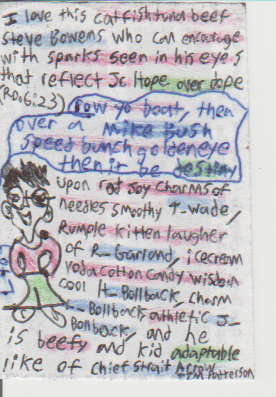 I love this catfish tuna beef
Steve Bowens who can encourage
with sparks seen in his eyes
that reflect Jc Hope over dope
(Ro.6:23) Row yo boat, then
over a Mike Bush
speed bunch goldeneye
then ir be destiny
upon rod joy charms of
needles smoothy T-wade,
Rumple kitten laugher
of R_ Garland, icecream
Yoda cotton candy wisdom
cool H_ Bollback, charm
_ Bollback athletic J_
Bollback, and he
is beefy and kid adaptable
like of chief strait Arrow
Tim Patterson